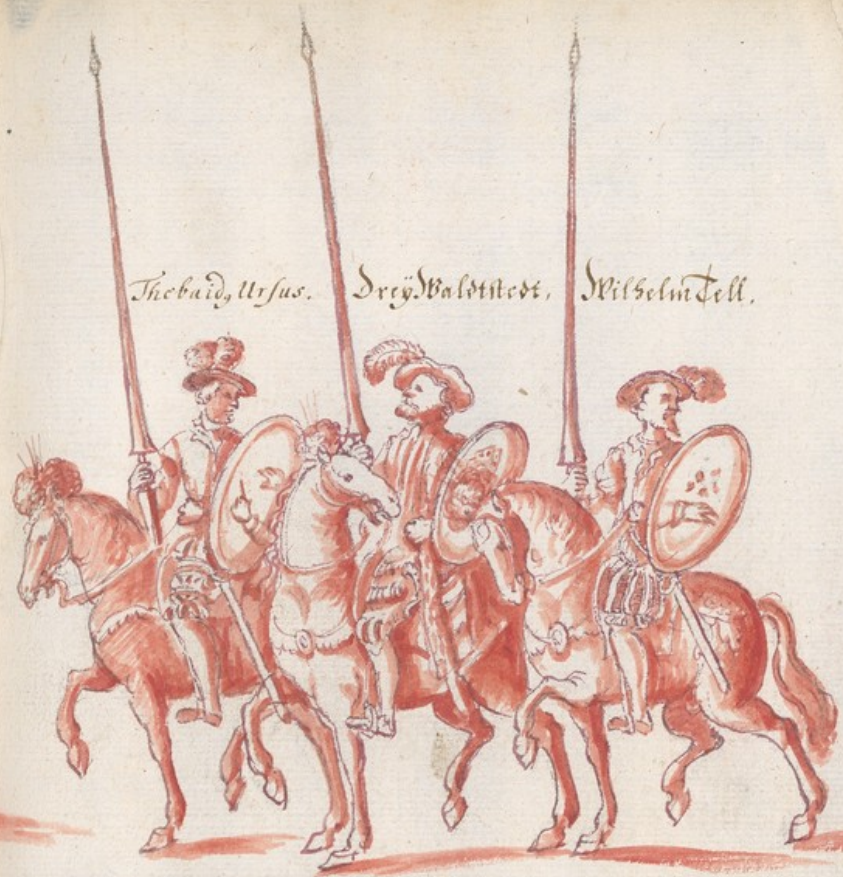 Thebaidꝫ Ursus. Dreÿ Waldtstedt, Wilhelm Tell.